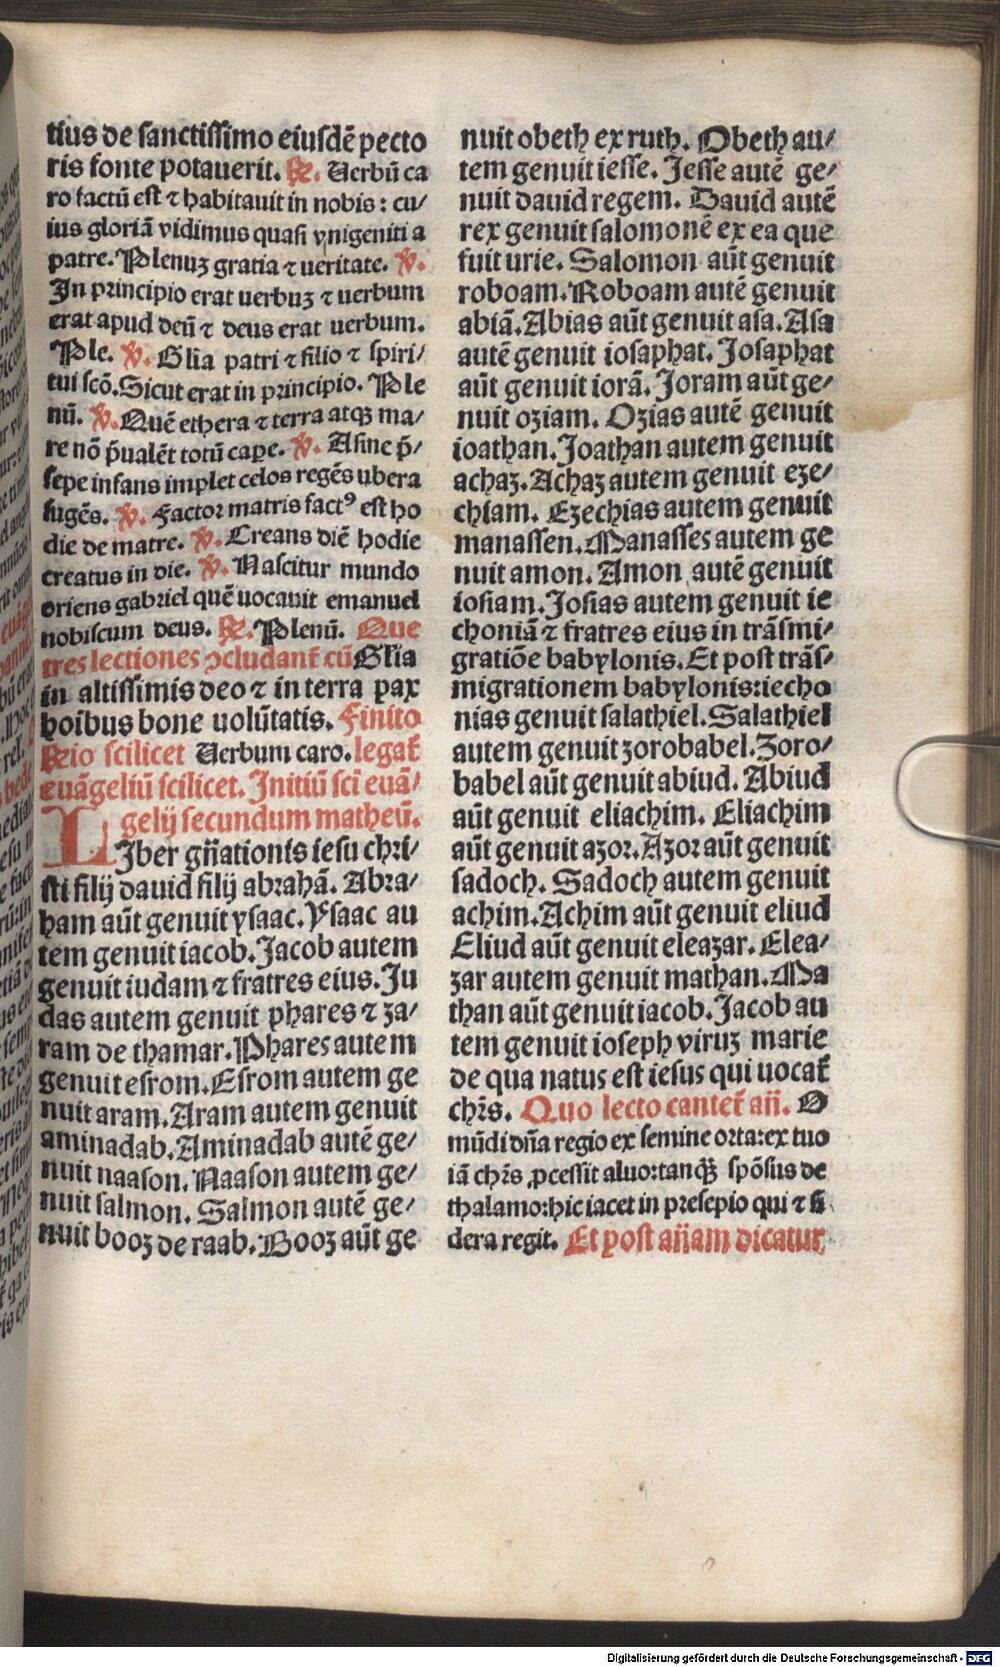 tius de sanctissimo eiusdē pecto
ris fonte potauerit. ℟. Uerbū ca
ro factū est ⁊ habitauit in nobis : cu/
ius gloriā vidimus quasi vnigeniti a
patre. Plenuꝫ gratia ⁊ ueritate. ℣.
In principio erat uerbuꝫ ⁊ uerbum
erat apud deū ⁊ deus erat uerbum.
Ple. ℣. Gl̄ia patri ⁊ filio ⁊ spiri/
tui scō. Sicut erat in principio. Ple
nū. ℣. Quē ethera ⁊ terra atqꝫ ma/
re nō p̄ualēt totū cape. ℣. Asine p̄/
sepe infans implet celos regēs ubera
sugēs. ℣. Factor matris factꝰ est ho
die de matre. ℣. Creans diē hodie
creatus in die. ℣. Nascitur mundo
oriens gabriel quē uocauit emanuel
nobiscum deus. ℟. Plenū. Que
tres lectiones ↄcludant᷑ cū Gl̄ia
in altissimis deo ⁊ in terra pax
hoībus bone uolūtatis. Finito
℟io scilicet Uerbum caro. legat᷑
euāgeliū scilicet. Initiū scī euā/
gelij secundum matheū.
LIber gn̄ationis iesu chri/
sti filij dauid filij abrahā. Abra/
ham aūt genuit ysaac. Ysaac au
tem genuit iacob. Jacob autem
genuit iudam ⁊ fratres eius. Ju
das autem genuit phares ⁊ za/
ram de thamar. Phares autem
genuit esrom. Esrom autem ge
nuit aram. Aram autem genuit
aminadab. Aminadab autē ge/
nuit naason. Naason autem ge/
nuit salmon. Salmon autē ge/
nuit booz de raab. Booz aūt ge
nuit obeth ex ruth. Obeth au/
tem genuit iesse. Jesse autē ge/
nuit dauid regem. Dauid autē
rex genuit salomonē ex ea que
fuit urie. Salomon aūt genuit
roboam. Roboam autē genuit
abiā. Abias aūt genuit asa. Asa
autē genuit iosaphat. Josaphat
aūt genuit iorā. Joram aūt ge/
nuit oziam. Ozias autē genuit
ioathan. Joathan autem genuit
achaz. Achaz autem genuit eze/
chiam. Ezechias autem genuit
manassen. Manasses autem ge
nuit amon. Amon autē genuit
iosiam. Josias autem genuit ie
choniā ⁊ fratres eius in trāsmi/
gratiōe babylonis. Et post trās/
migrationem babylonis: iecho
nias genuit salathiel. Salathiel
autem genuit zorobabel. Zoro/
babel aūt genuit abiud. Abiud
aūt genuit eliachim. Eliachim
aūt genuit azor. Azor aūt genuit
sadoch. Sadoch autem genuit
achim. Achim aūt genuit eliud
Eliud aūt genuit eleazar. Elea/
zar autem genuit mathan. Ma
than aūt genuit iacob. Jacob au
tem genuit ioseph viruꝫ marie
de qua natus est iesus qui uocat᷑
chr̄s. Quo lecto cantet᷑ an̄. O
mūdi dn̄a regio ex semine orta: ex tuo
iā chr̄s ꝓcessit aluo: tanqꝫ spōsus de
thalamo: hic iacet in presepio qui ⁊ si
dera regit. Et post an̄am dicatur
Digitalisierung gefördert durch die Deutsche Forschungsgemeinschaft - DFG